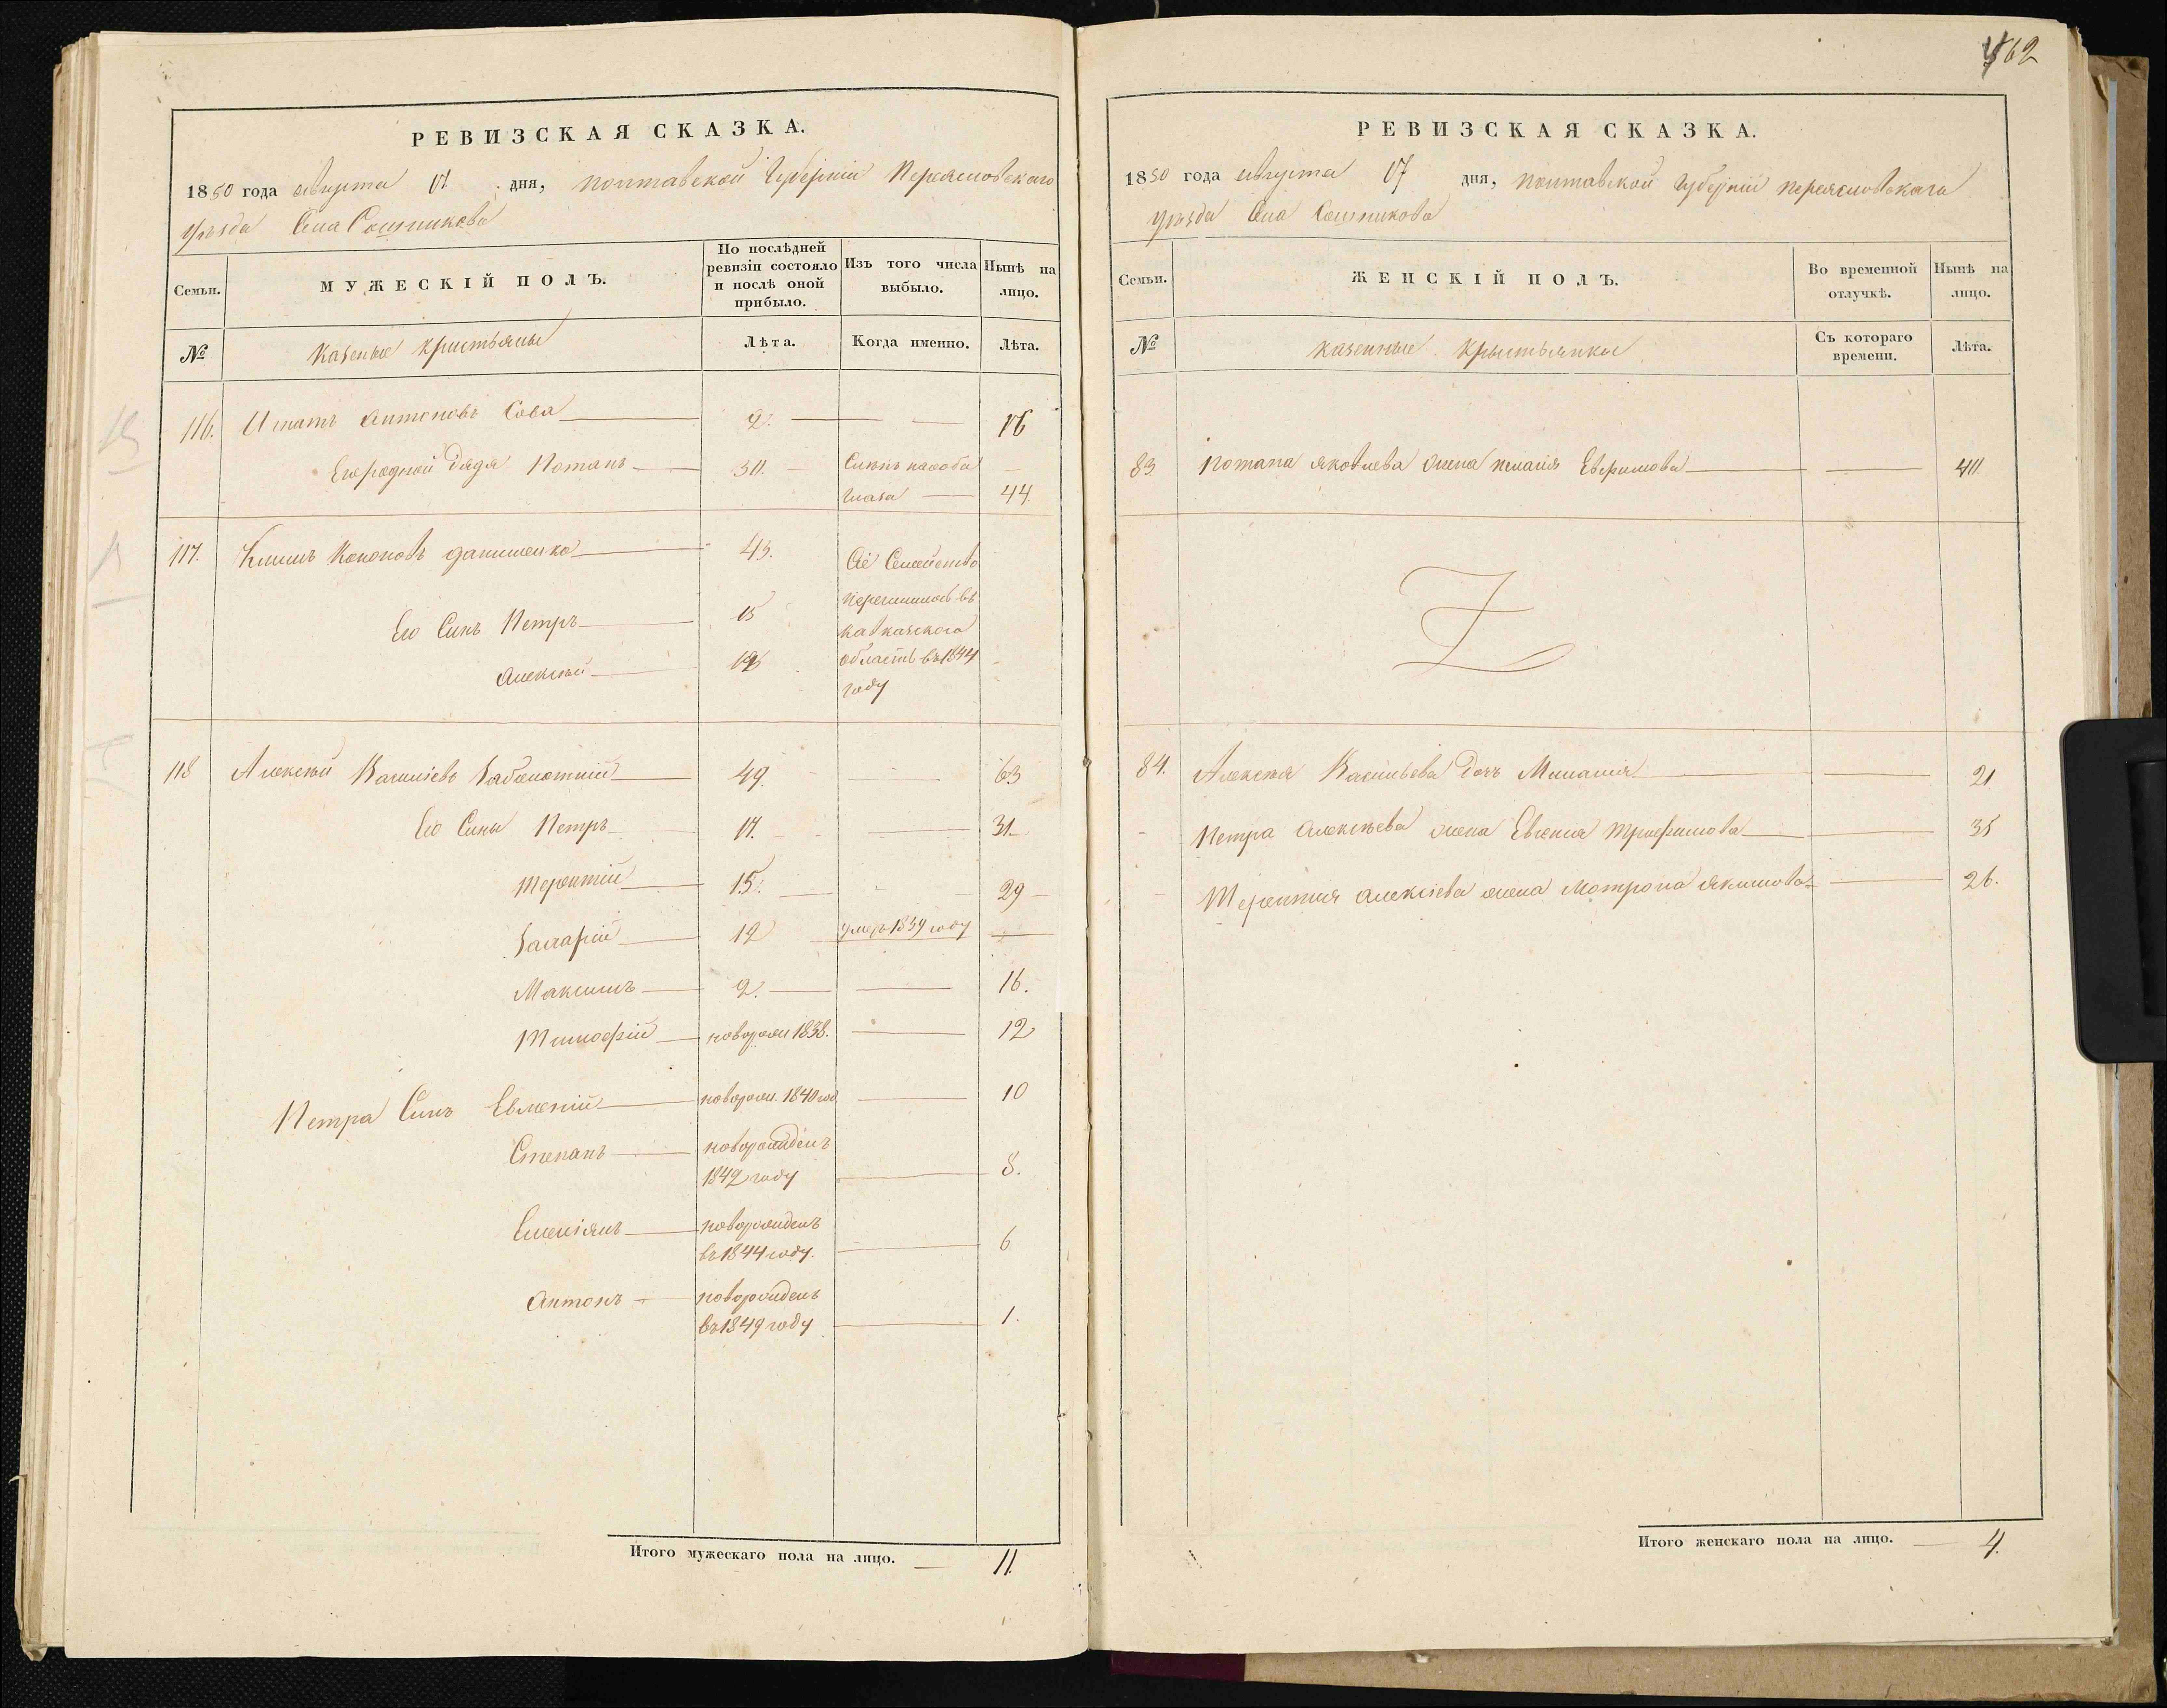 462
РЕВИЗСКАЯ СКАЗКА.
1850 года августа 17 дня, полтавской Губерніи Переясловского
уѣзда Села Сошникова
Семьи.
МУЖЕСКІЙ ПОЛЪ.
По послѣдней ревизіи состояло и послѣ оной прибыло.
Изъ того числа выбыло.
Нынѣ на лицо.
№
Казеные кристьяны
Лѣта.
Когда именно.
Лѣта.
116. Игнатъ Антоновъ Сова 2. 16
Его родной дядя Потапъ 30. Слѣпъ на оба
глаза 44
117. Климъ Кононовъ Данименко 43. Сіе Семейство
перечислилось въ
Его Синъ Петръ 15 кавказскою
Алексѣй область въ 1844
году
118 Алексѣй Василіевъ Заболотній 49. 63
Его Сины Петръ 17. 31
Терентій 15. 29
Захарій 12 умеръ 1839 году
Максимъ 2. 16.
Тимофій новорож 1838. 12
Петра Синъ Евменій новорож. 1840 год 10
Степанъ новорожденъ
1842 году 8.
Емеліянъ новорожденъ
въ 1844 году. 6
Антонъ новорожденъ
въ 1849 году 1.
Итого мужескаго пола на лицо. 11.
РЕВИЗСКАЯ СКАЗКА.
1850 года августа 17 дня, полтавской Губерніи переясловскага
уѣзда Села Сошникова
Семьи.
ЖЕНСКІЙ ПОЛЪ.
Во временной отлучкѣ.
Нынѣ на лицо.
№
казенные Крыстьянки
Съ котораго времени.
Лѣта.
83 Потапа яковлева жена Евфимова 40
84. Алексея Васильева Дочь Миланія 21
Петра Алексѣева жена Евгенія Трифимова 35
Терентия Алексіева жена Мотрона Якимова 26.
Итого женскаго пола на лицо. 4.